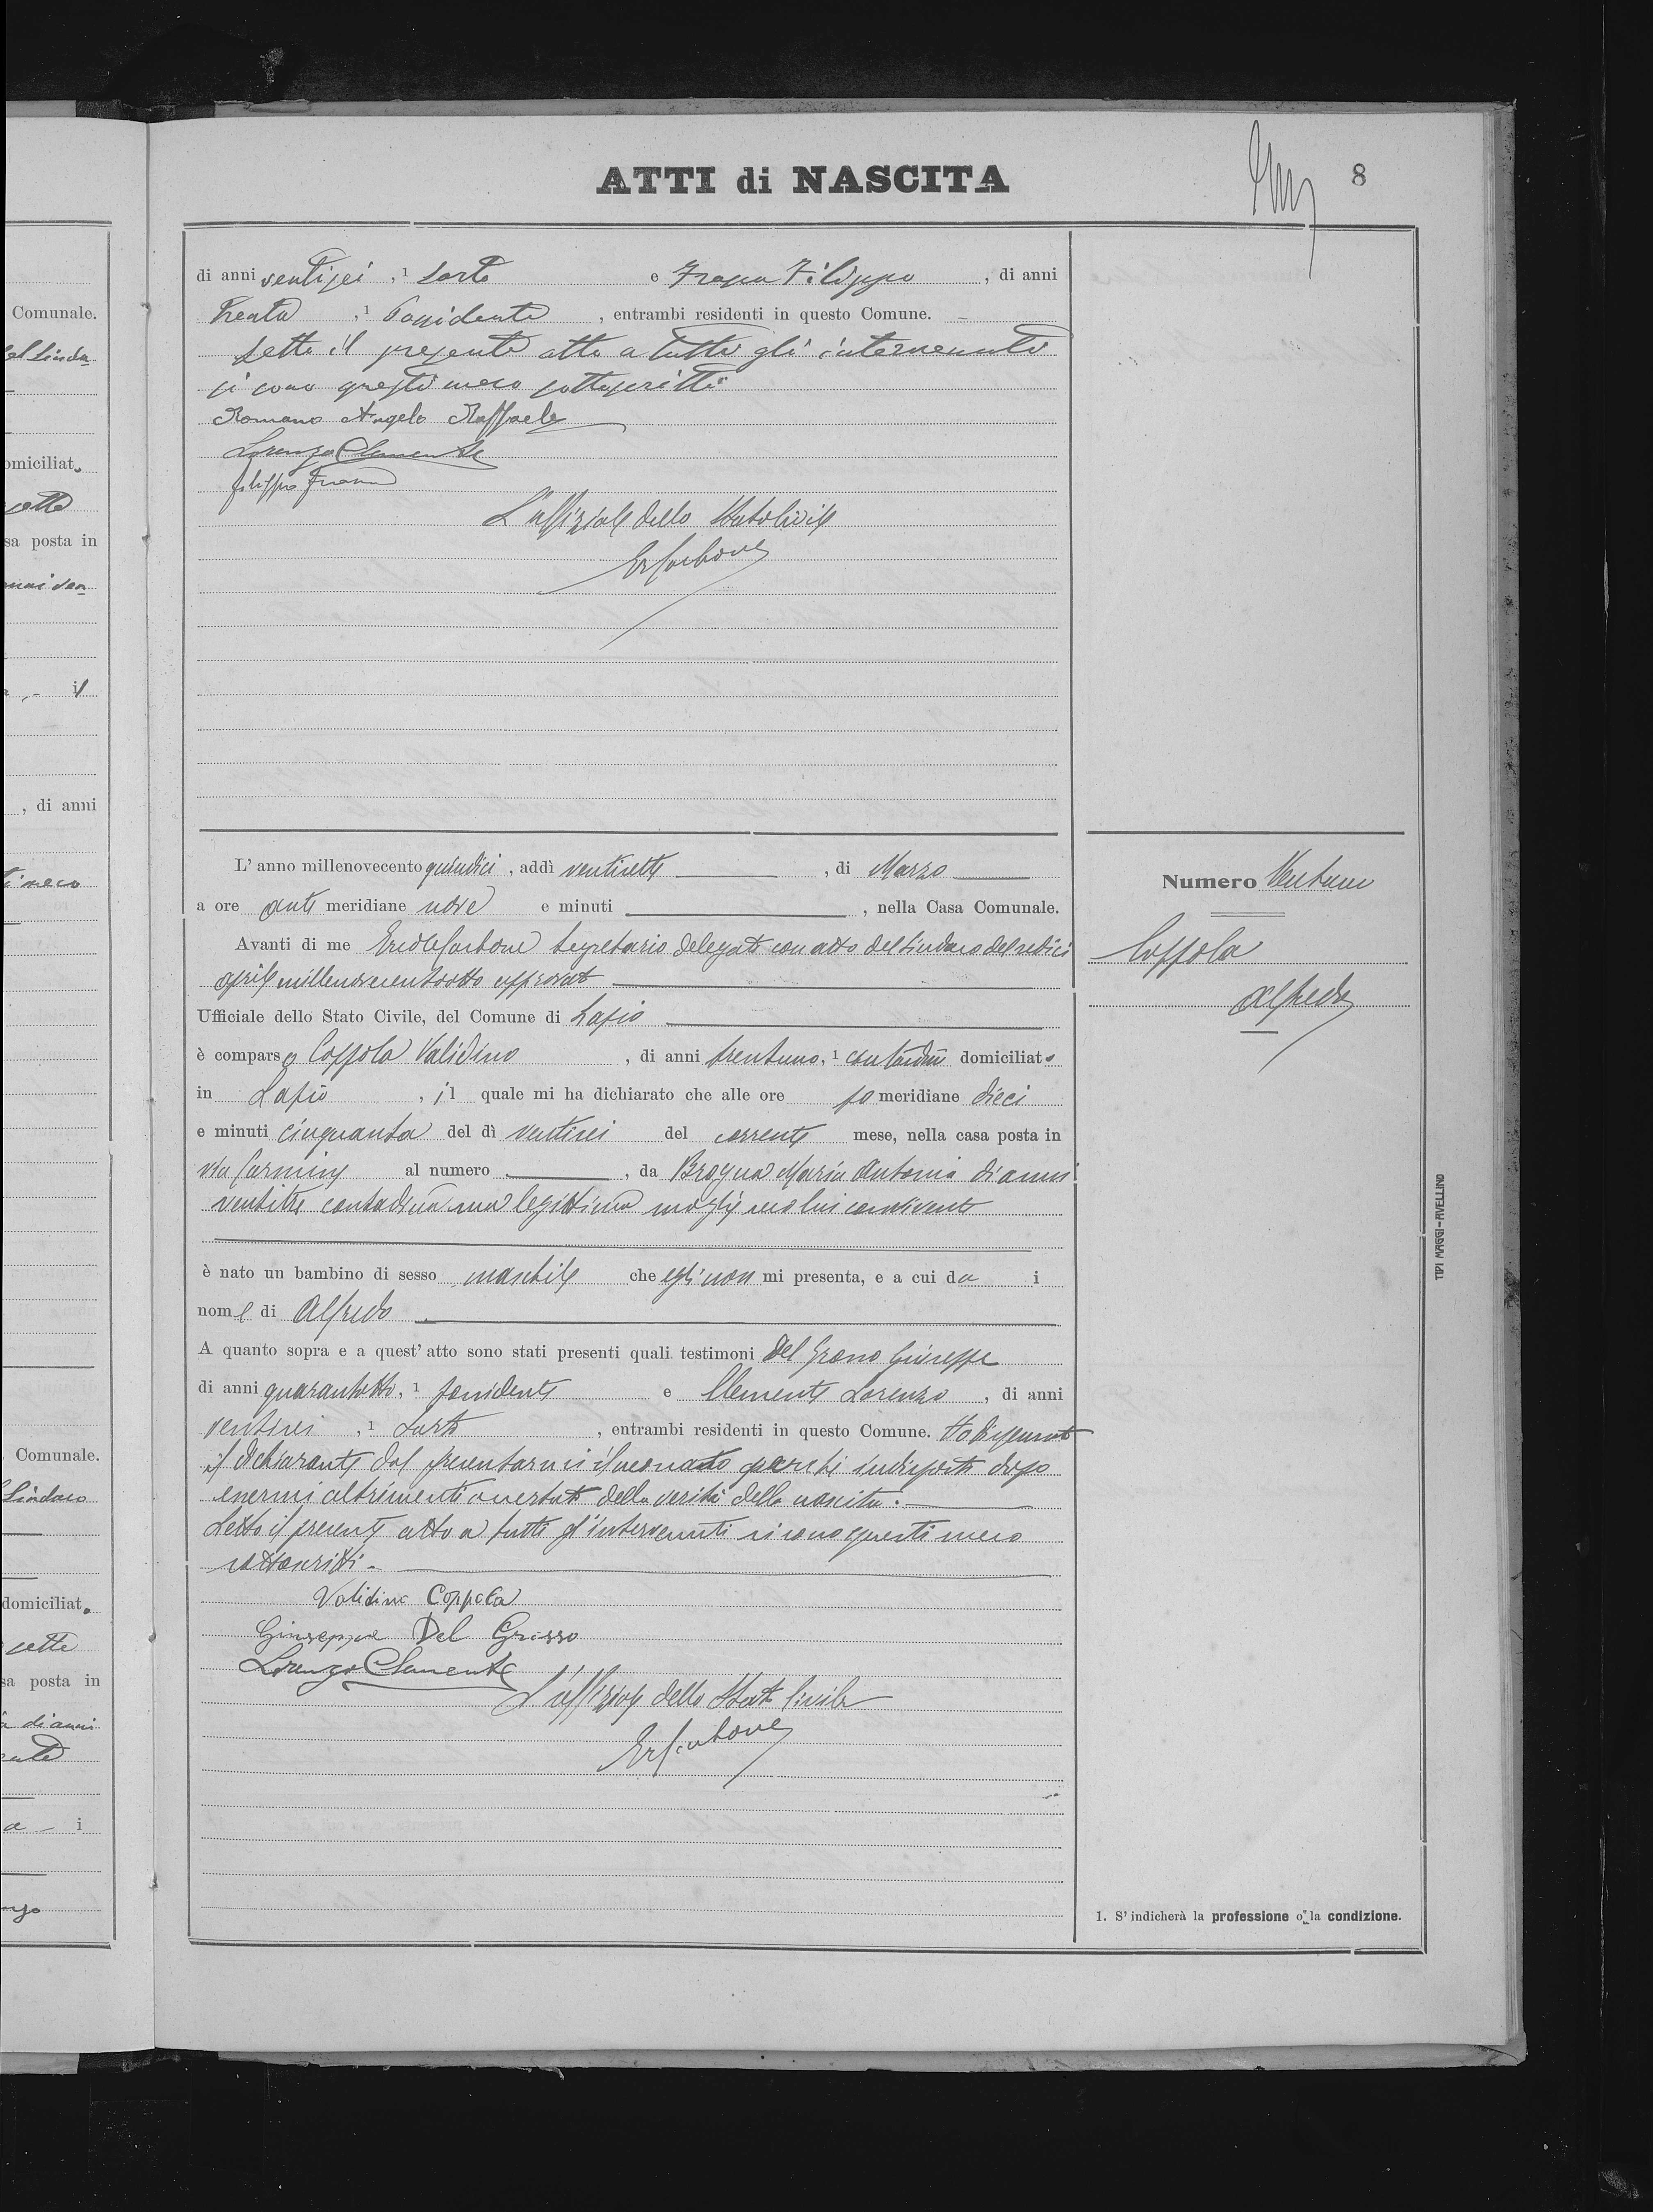 ATTI di NASCITA
8
di anni ventisei, 1 Sarto e Frosa Filippo, di anni
Trenta, 1 Possidente, entrambi residenti in questo Comune.
Letto il presente atto a tutti gli intervenuti
si sono questi meco sottoscritti
Romano Angelo Raffaele
Lorenzo Clemente
Filippo
L'uffiziale dello Stato Civile
Er Carbone
L'anno millenovecento quindici, addì ventisette, di Marzo
a ore anti meridiane nove e minuti, nella Casa Comunale.
Avanti di me Ercole Carbone Segretario delegato con atto del Sindaco del sedici
aprile millenovecentootto approvato
Ufficiale dello Stato Civile, del Comune di Lapio
è comparso Coppola Validino, di anni trentuno, 1 contadino domiciliato
in Lapio, il quale mi ha dichiarato che alle ore po meridiane dieci
e minuti cinquanta del dì ventisei del corrente mese, nella casa posta in
via Carmine al numero, da Brogna Maria Antonia di anni
ventitre contadina sua legittima moglie seco lui convivente
è nato un bambino di sesso maschile che egli non mi presenta, e a cui da i
nome di Alfredo
A quanto sopra e a quest'atto sono stati presenti quali testimoni Del Grosso Giuseppe
di anni quarantotto, 1 possidente e Clemente Lorenzo, di anni
ventisei, 1 Sarto, entrambi residenti in questo Comune. Ho dispensato
il dichiarante dal presentarmi il neonato perchè indisposto dopo
essermi altrimenti accertato della verità della nascita.
Letto il presente atto a tutti gl'intervenuti si sono questi meco
sottoscritti.
Validino Coppola
Giuseppe Del Grosso
Lorenzo Clemente
L'uffiziale dello Stato Civile
Er Carbone
Numero Ventuno
Coppola
Alfredo
TIPI MAGGI - AVELLINO
1. S'indicherà la professione o la condizione.
Comunale.
del Sinda-
omiciliat.
sette
sa posta in
il
, di anni
meco
Comunale.
Sindaco
domiciliat.
sette
sa posta in
a di anni
a - i